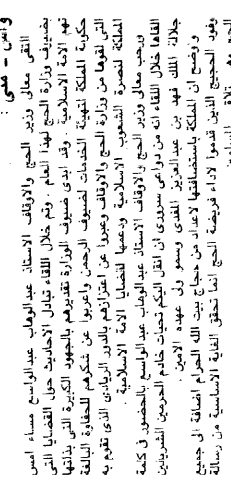 واس - منى :
التقى معالي وزير الحج والاوقاف الاستاذ عبدالوهاب عبدالواسع مساء امس
بضيوف وزارة الحج لهذا العام . وتم خلال اللقاء تبادل الاحاديث حول القضايا التي
تهم الامة الاسلامية . وقد ابدى ضيوف الوزارة تقديرهم بالجهود الكبيرة التي بذلتها
حكومة المملكة لتهيئة الخدمات لضيوف الرحمن واعربوا عن شكرهم للحفاوة البالغة
التي لقوها من وزارة الحج والاوقاف وعبروا عن اعتزازهم بالدور الريادي الذي تقوم به
المملكة لنصرة الشعوب الاسلامية ودعمها لقضايا الامة الاسلامية .
ورحب معالي وزير الحج والاوقاف الاستاذ عبدالوهاب عبدالواسع بالحضور في كلمة
القاها خلال اللقاء انه من دواعي سروري ان انقل اليكم تحيات خادم الحرمين الشريفين
جلالة الملك فهد بن عبدالعزيز المفدى وسمو ولي عهده الامين .
واوضح ان المملكة باستضافتها لاعداد من حجاج بيت الله الحرام اضافة الى جميع
وفود الحجيج الذين قدموا لاداء فريضة الحج انما تحقق الغاية الاساسية من رسالة